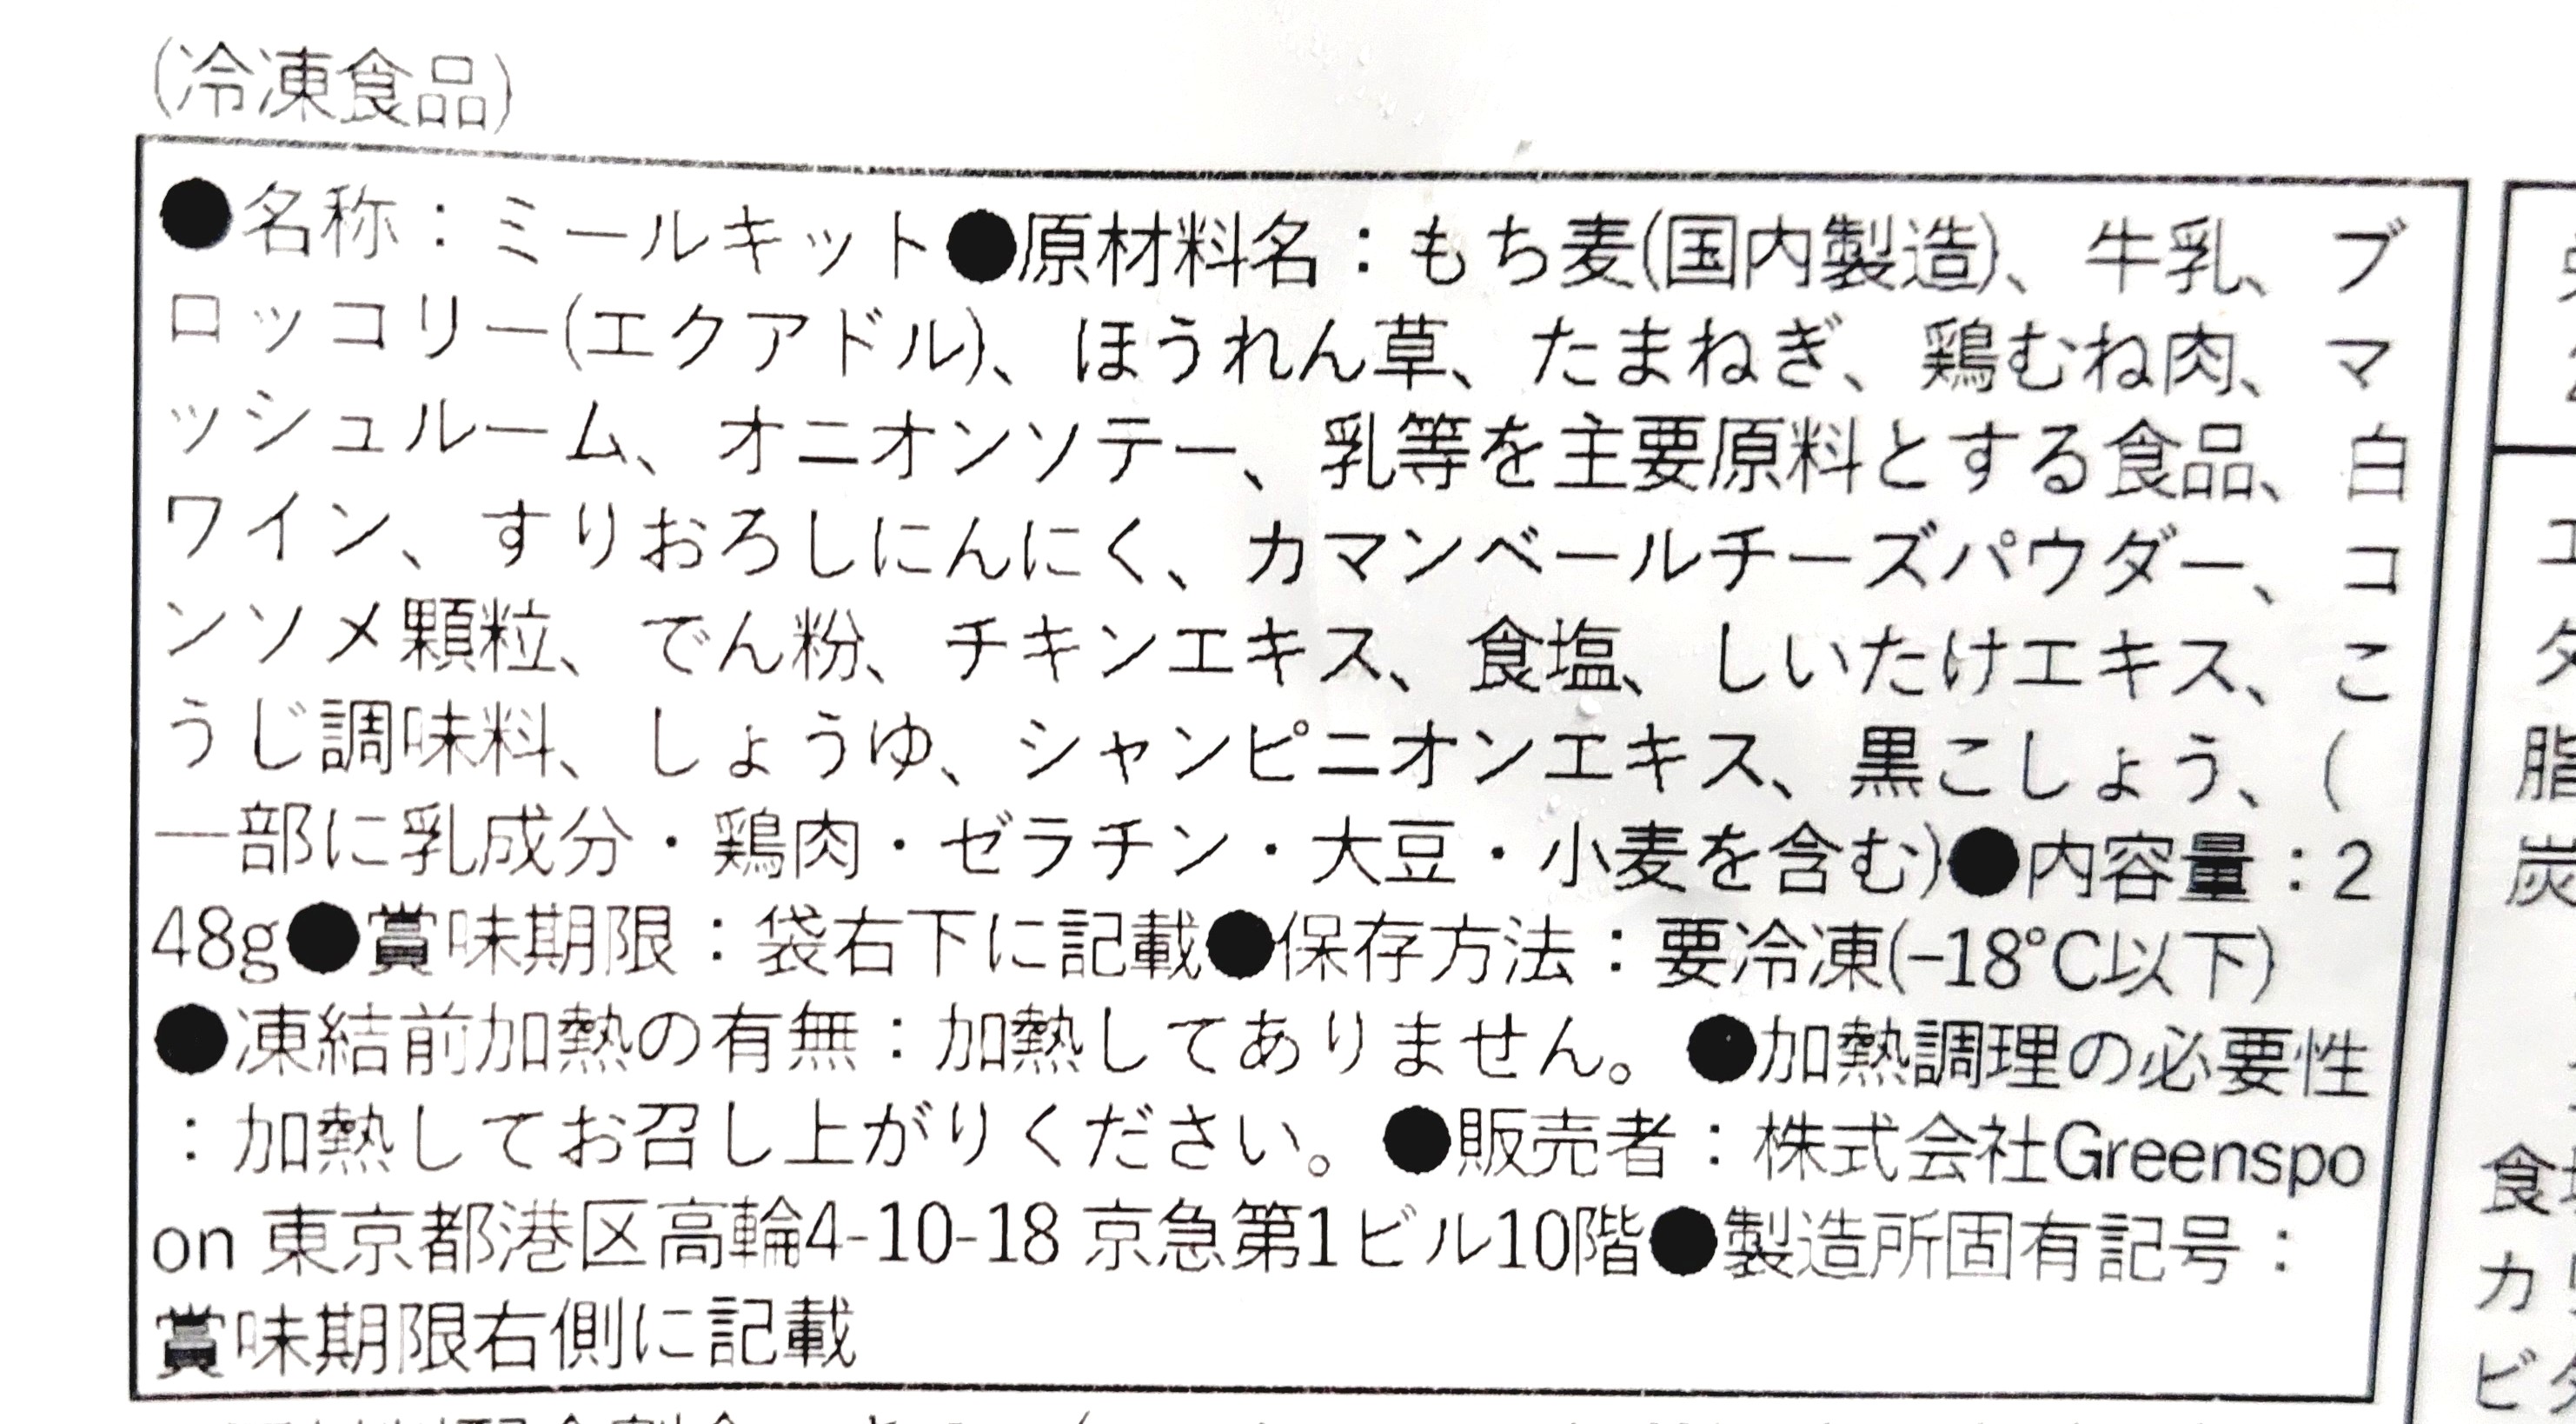 (冷凍食品)
●名称：ミールキット●原材料名：もち麦(国内製造)、牛乳、ブ
ロッコリー(エクアドル)、ほうれん草、たまねぎ、鶏むね肉、マ
ッシュルーム、オニオンソテー、乳等を主要原料とする食品、白
ワイン、すりおろしにんにく、カマンベールチーズパウダー、コ
ンソメ顆粒、でん粉、チキンエキス、食塩、しいたけエキス、こ
うじ調味料、しょうゆ、シャンピニオンエキス、黒こしょう、(
一部に乳成分・鶏肉・ゼラチン・大豆・小麦を含む)●内容量：2
48g●賞味期限：袋右下に記載●保存方法：要冷凍(-18℃以下)
●凍結前加熱の有無：加熱してありません。●加熱調理の必要性
：加熱してお召し上がりください。●販売者：株式会社Greenspo
on 東京都港区高輪4-10-18 京急第1ビル10階●製造所固有記号：
賞味期限右側に記載
エ
脂
炭
食
カ
ビ